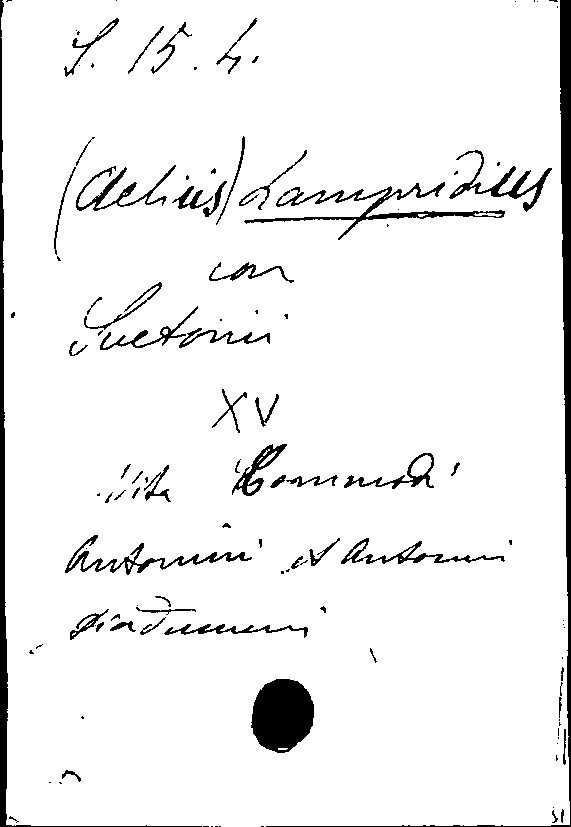 S. 15. 4.
(Aelius) Lampridius
con
Suetonii
XV
Vita Commodi
Antonini et Antonini
Diadumeni